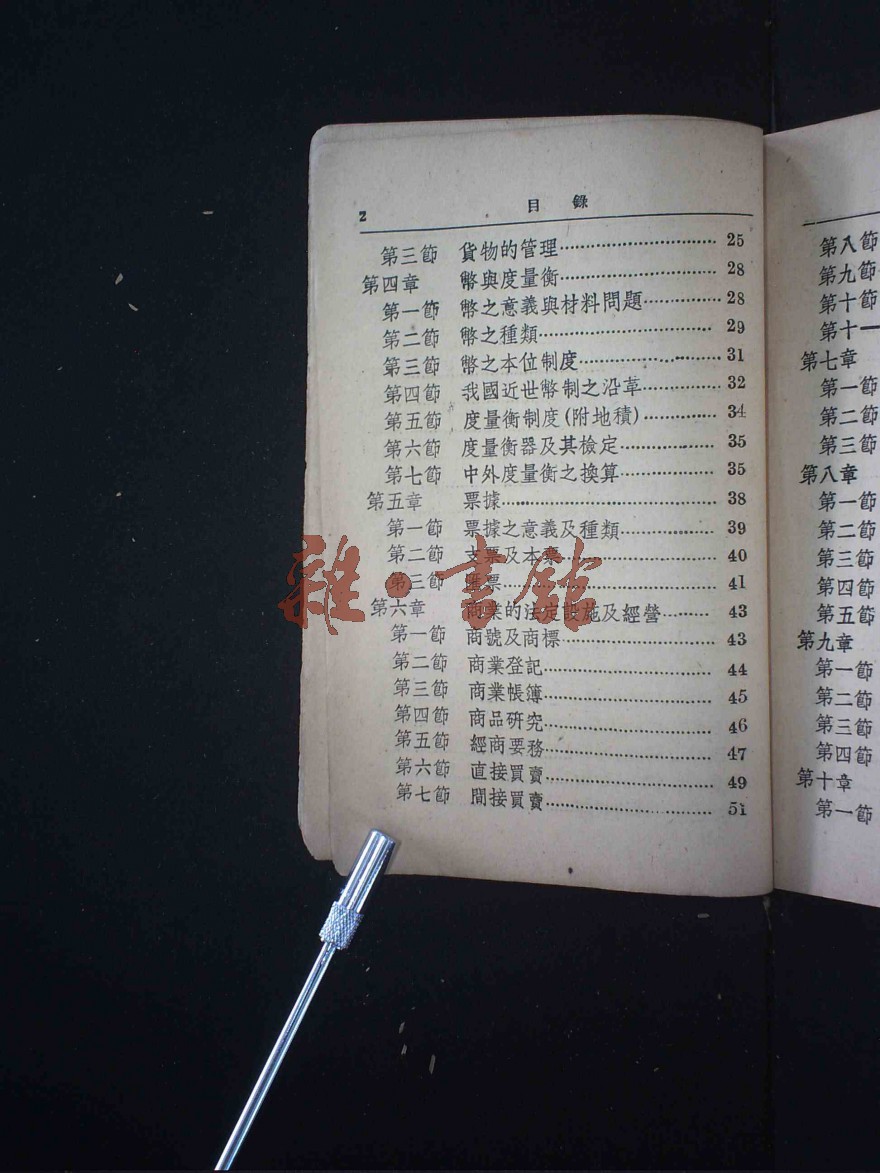 2 目錄
第三節 貨物的管理 25
第四章 幣與度量衡 28
第一節 幣之意義與材料問題 28
第二節 幣之種類 29
第三節 幣之本位制度 31
第四節 我國近世幣制之沿革 32
第五節 度量衡制度(附地積) 34
第六節 度量衡器及其檢定 35
第七節 中外度量衡之換算 35
第五章 票據 38
第一節 票據之意義及種類 39
第二節 支票及本票 40
第三節 匯票 41
第六章 商業的法定設施及經營 43
第一節 商號及商標 43
第二節 商業登記 44
第三節 商業帳簿 45
第四節 商品研究 46
第五節 經商要務 47
第六節 直接買賣 49
第七節 間接買賣 51
雜·書館
第八節
第九節
第十節
第十一
第七章
第一節
第二節
第三節
第八章
第一節
第二節
第三節
第四節
第五節
第九章
第一節
第二節
第三節
第四節
第十章
第一節